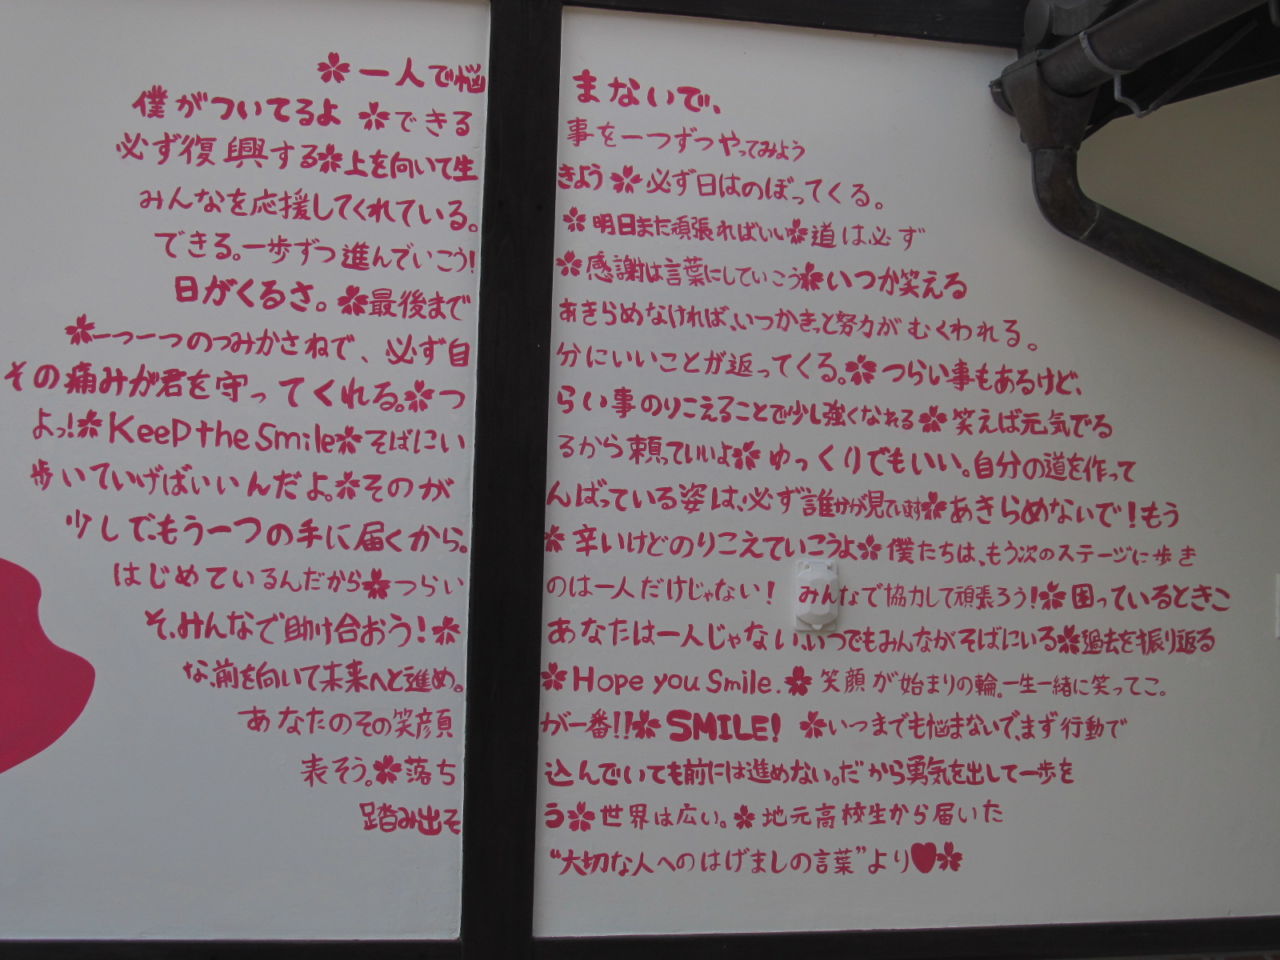 ✿一人で悩まないで、
僕がついてるよ ✿できる事を一つずつやってみよう
必ず復興する✿上を向いて生きよう ✿必ず日はのぼってくる。
みんなを応援してくれている。✿明日また頑張ればいい✿道は必ず
できる。一歩ずつ進んでいこう!✿感謝は言葉にしていこう✿いつか笑える
日がくるさ。✿最後まであきらめなければ、いつかきっと努力がむくわれる。
✿一つ一つのつみかさねで、必ず自分にいいことが返ってくる。✿つらい事もあるけど、
その痛みが君を守ってくれる。✿つらい事のりこえることで少し強くなれる✿笑えば元気でる
よっ!✿Keep the Smile✿そばにいるから頼っていいよ✿ゆっくりでもいい。自分の道を作って
歩いていけばいいんだよ。✿そのがんばっている姿は、必ず誰かが見ています✿あきらめないで!もう
少しで、もう一つの手に届くから。✿辛いけどのりこえていこうよ✿僕たちは、もう次のステージに歩き
はじめているんだから✿つらいのは一人だけじゃない! みんなで協力して頑張ろう!✿困っているときこ
そ、みんなで助け合おう!✿あなたは一人じゃない、いつでもみんながそばにいる✿過去を振り返る
な、前を向いて未来へと進め。✿Hope you Smile.✿笑顔が始まりの輪。一生一緒に笑ってこ。
あなたのその笑顔が一番!!✿SMILE! ✿いつまでも悩まないで、まず行動で
表そう。✿落ち込んでいても前には進めない。だから勇気を出して一歩を
踏み出そう✿世界は広い。✿地元高校生から届いた
“大切な人へのはげましの言葉”より♥✿